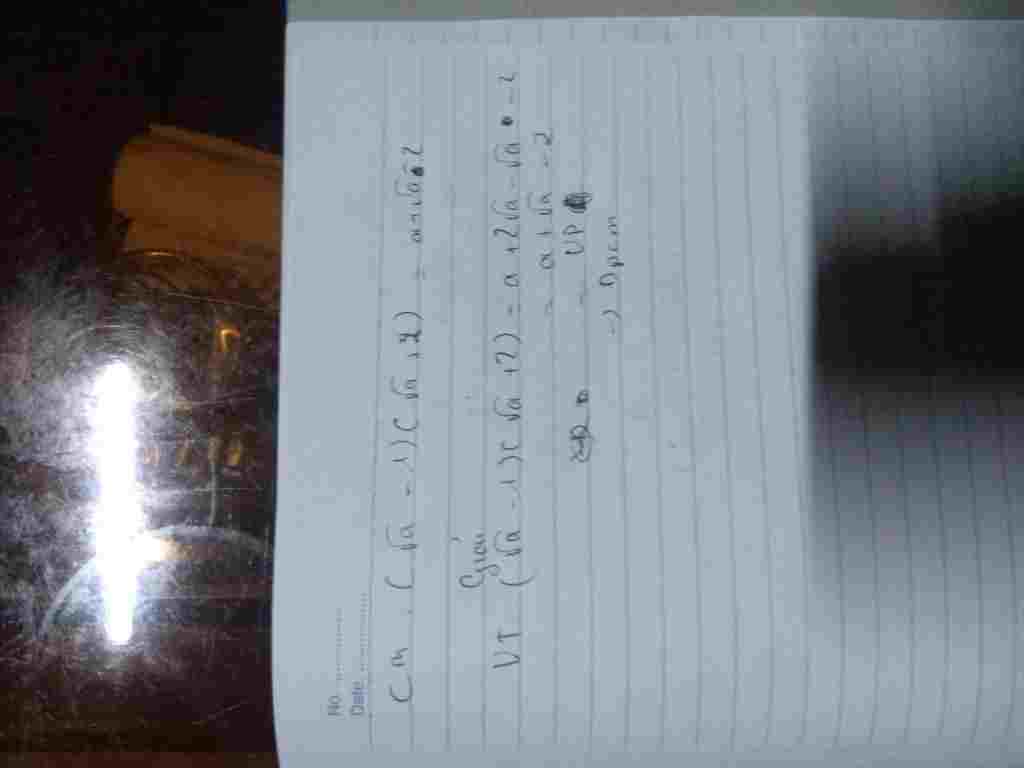 No. ..................
Date ..................
Cm : (√a - 1)(√a + 2) = a + √a - 2
Giải
VT (√a - 1)(√a + 2) = a + 2√a - √a - 2
= a + √a - 2
= VP
-) Đpcm